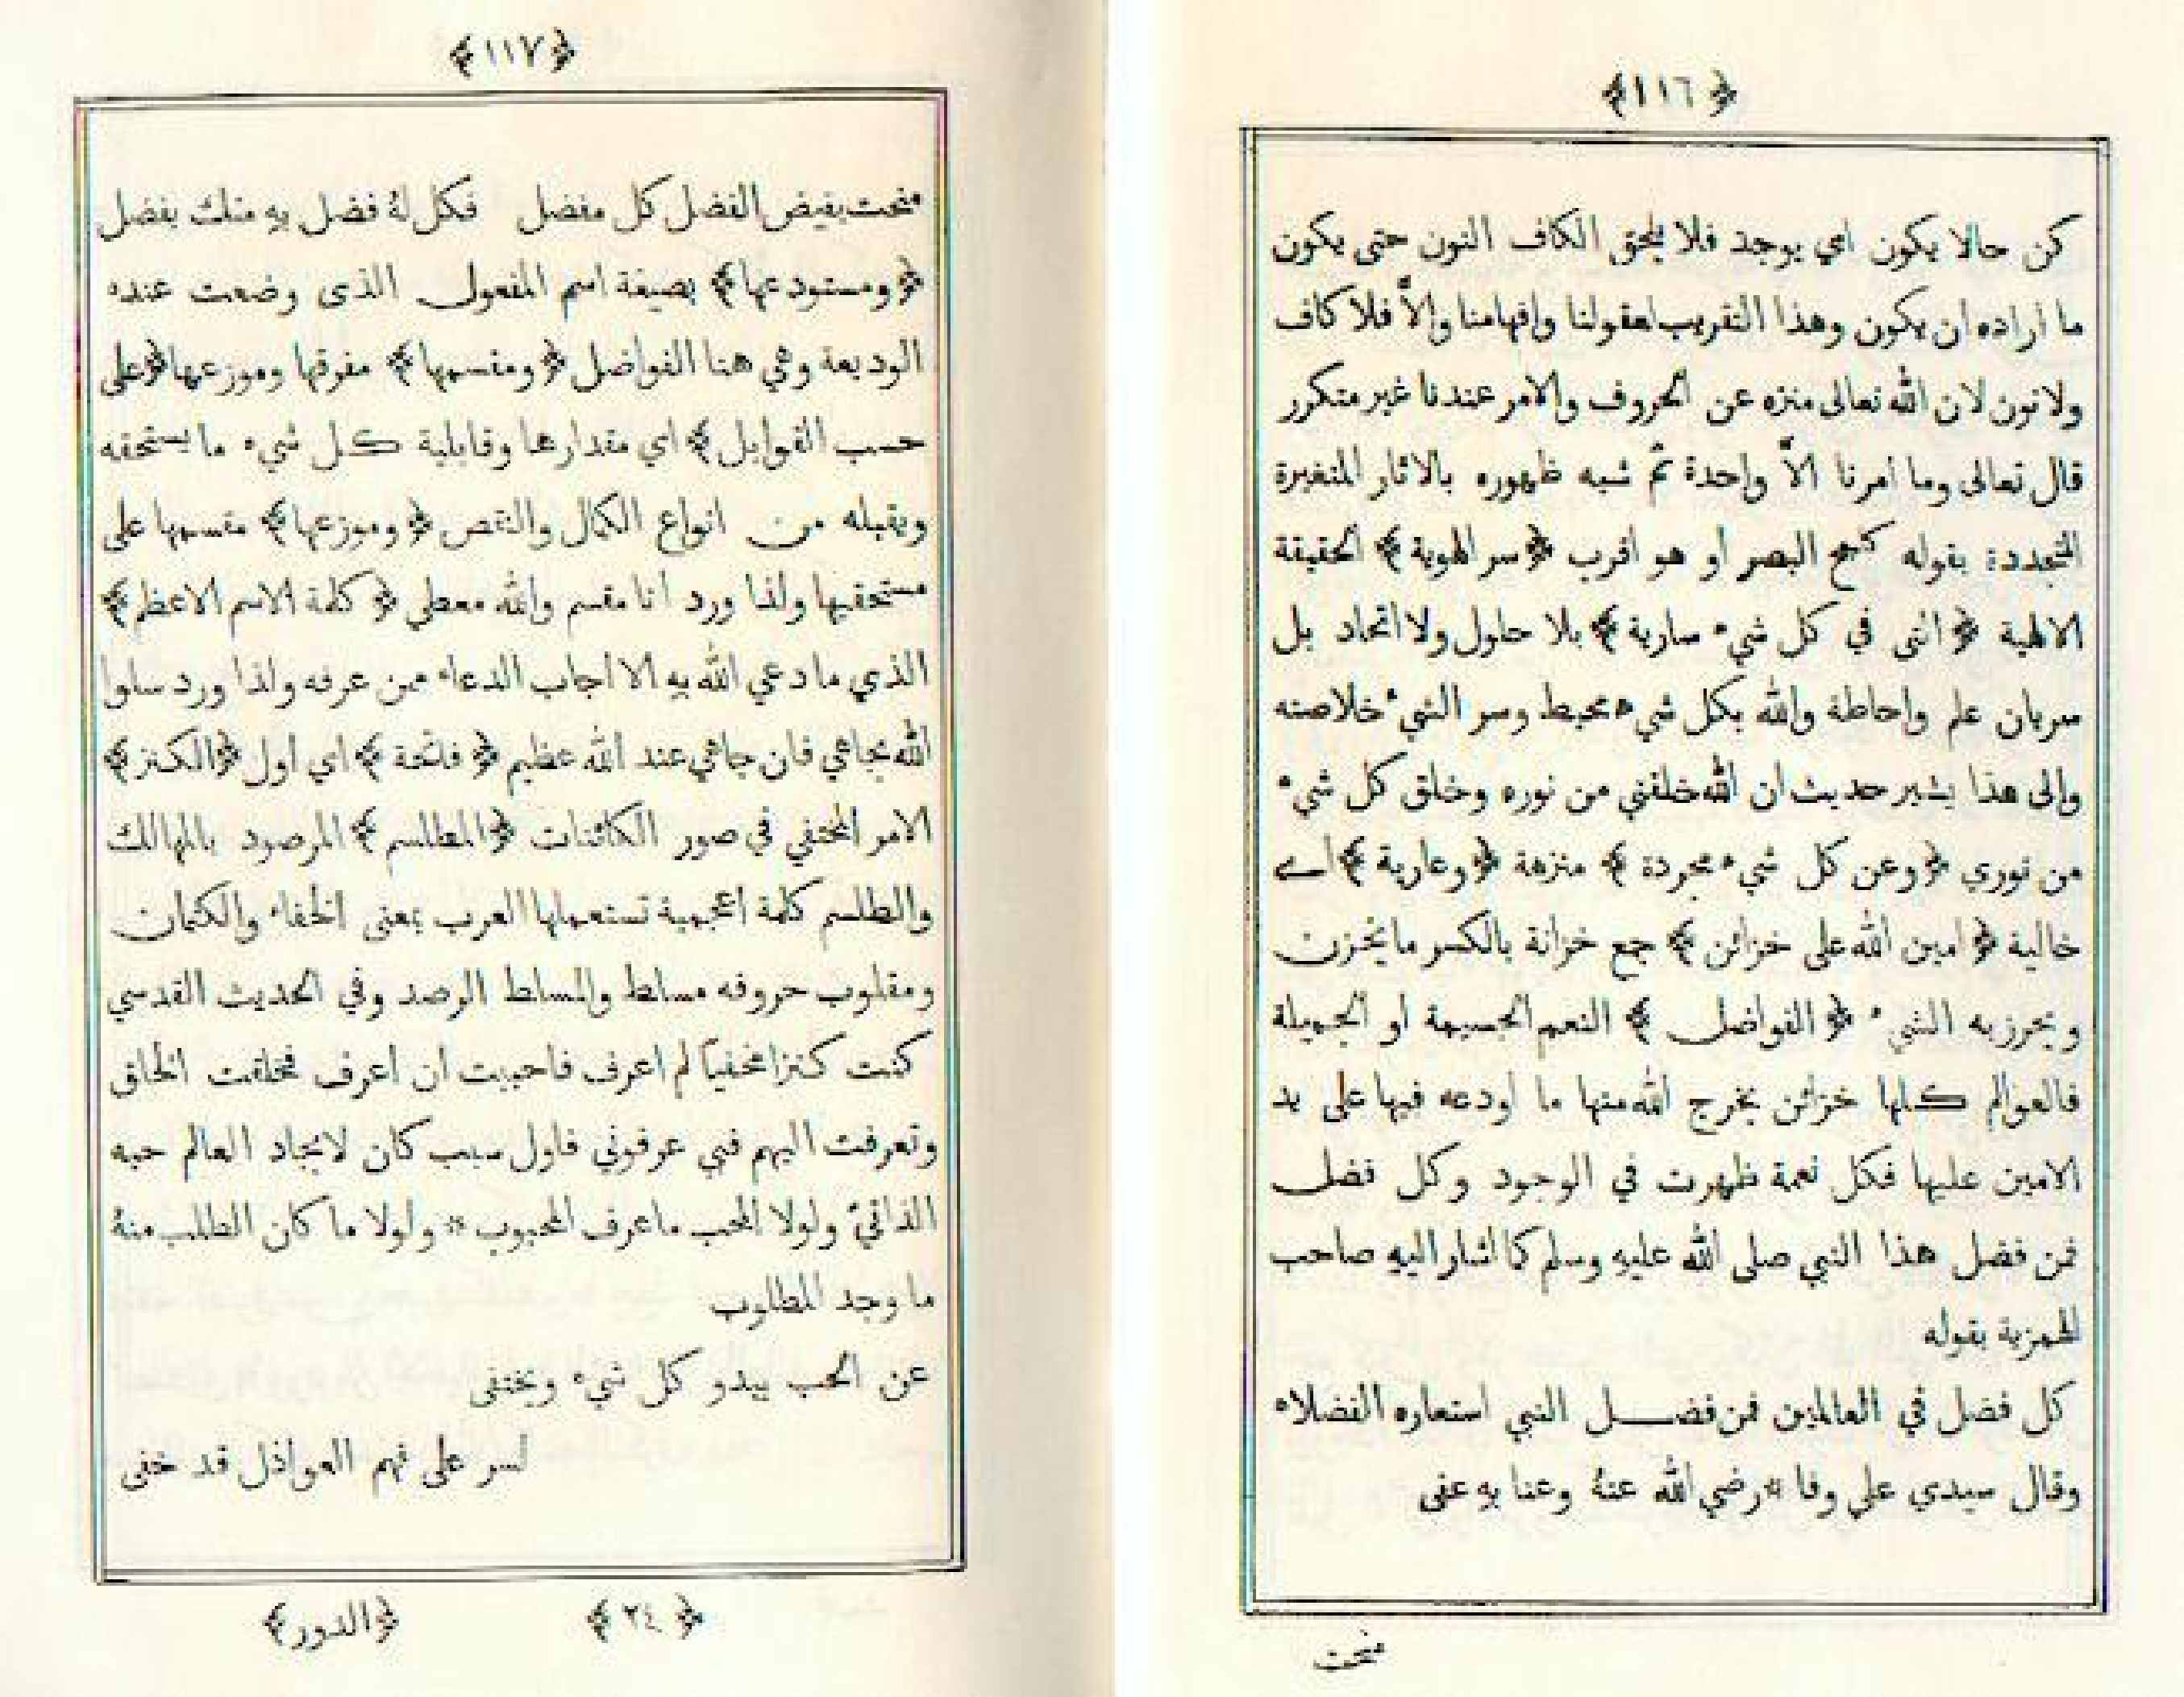 ﴿١١٦﴾
كن حالا يكون اي يوجد فلا يلحق الكاف النون حتى يكون
ما اراده ان يكون وهذا التقريب لعقولنا وافهامنا والاّ فلا كاف
ولا نون لان الله تعالى منزه عن الحروف والامر عندنا غير متكرر
قال تعالى وما امرنا الاّ واحدة ثمّ شبه ظهوره بالاثار المتغيرة
المتجددة بقوله كلمح البصر او هو اقرب ﴿سر الهوية﴾ الحقيقة
الالهية ﴿التى في كل شيء سارية﴾ بلا حلول ولا اتحاد بل
سريان علم واحاطة والله بكل شيء محيط وسر الشيء خلاصته
والى هذا يشير حديث ان الله خلقني من نوره وخلق كل شيء
من نوري ﴿وعن كل شيء مجردة﴾ منزهة ﴿وعارية﴾ اى
خالية ﴿امين الله على خزائن﴾ جمع خزانة بالكسر ما يخزن
ويحرز به الشيء ﴿الفواضل﴾ النعم الجسيمة او الجميلة
فالعوالم كلها خزائن يخرج الله منها ما اودعه فيها على يد
الامين عليها فكل نعمة ظهرت في الوجود وكل فضل
فمن فضل هذا النبي صلى الله عليهِ وسلم كما اشار اليهِ صاحب
الهمزية بقوله
كل فضل في العالمين فمن فضـــل النبي استعاره الفضلاء
وقال سيدي علي وفا * رضي الله عنهُ وعنا بهِ عفى
منحت
﴿١١٧﴾
منحت بفيض الفضل كل مفضل فكل لهُ فضل بهِ منك يفضل
﴿ومستودعها﴾ بصيغة اسم المفعول الذى وضعت عنده
الوديعة وهي هنا الفواضل ﴿ومقسمها﴾ مفرقها وموزعها ﴿على
حسب القوابل﴾ اي مقدارها وقابلية كل شيء ما يستحقه
ويقبله من انواع الكمال والنقص ﴿وموزعها﴾ مقسمها على
مستحقيها ولذا ورد انا مقسم والله معطى ﴿كلمة الاسم الاعظم﴾
الذي ما دعي الله بهِ الا اجاب الدعاء ممن عرفه ولذا ورد سلوا
الله بجاهي فان جاهي عند الله عظيم ﴿فاتحة﴾ اي اول ﴿الكنز﴾
الامر المختفي في صور الكائنات ﴿المطلسم﴾ المرصود بالمهالك
والطلسم كلمة اعجمية تستعملها العرب بمعنى الخفاء والكتمان
ومقلوب حروفه مسلط والمسلط الرصد وفي الحديث القدسي
كنت كنزا مخفياً لم اعرف فاحببت ان اعرف فخلقت الخلق
وتعرفت اليهم فبي عرفوني فاول سبب كان لايجاد العالم حبه
الذاتيّ ولولا المحب ما عرف المحبوب * ولولا ما كان الطلب منهُ
ما وجد المطلوب
عن الحب يبدو كل شيء ويختفى
لسر على فهم العواذل قد خفى
﴿٢٤﴾ ﴿الدور﴾